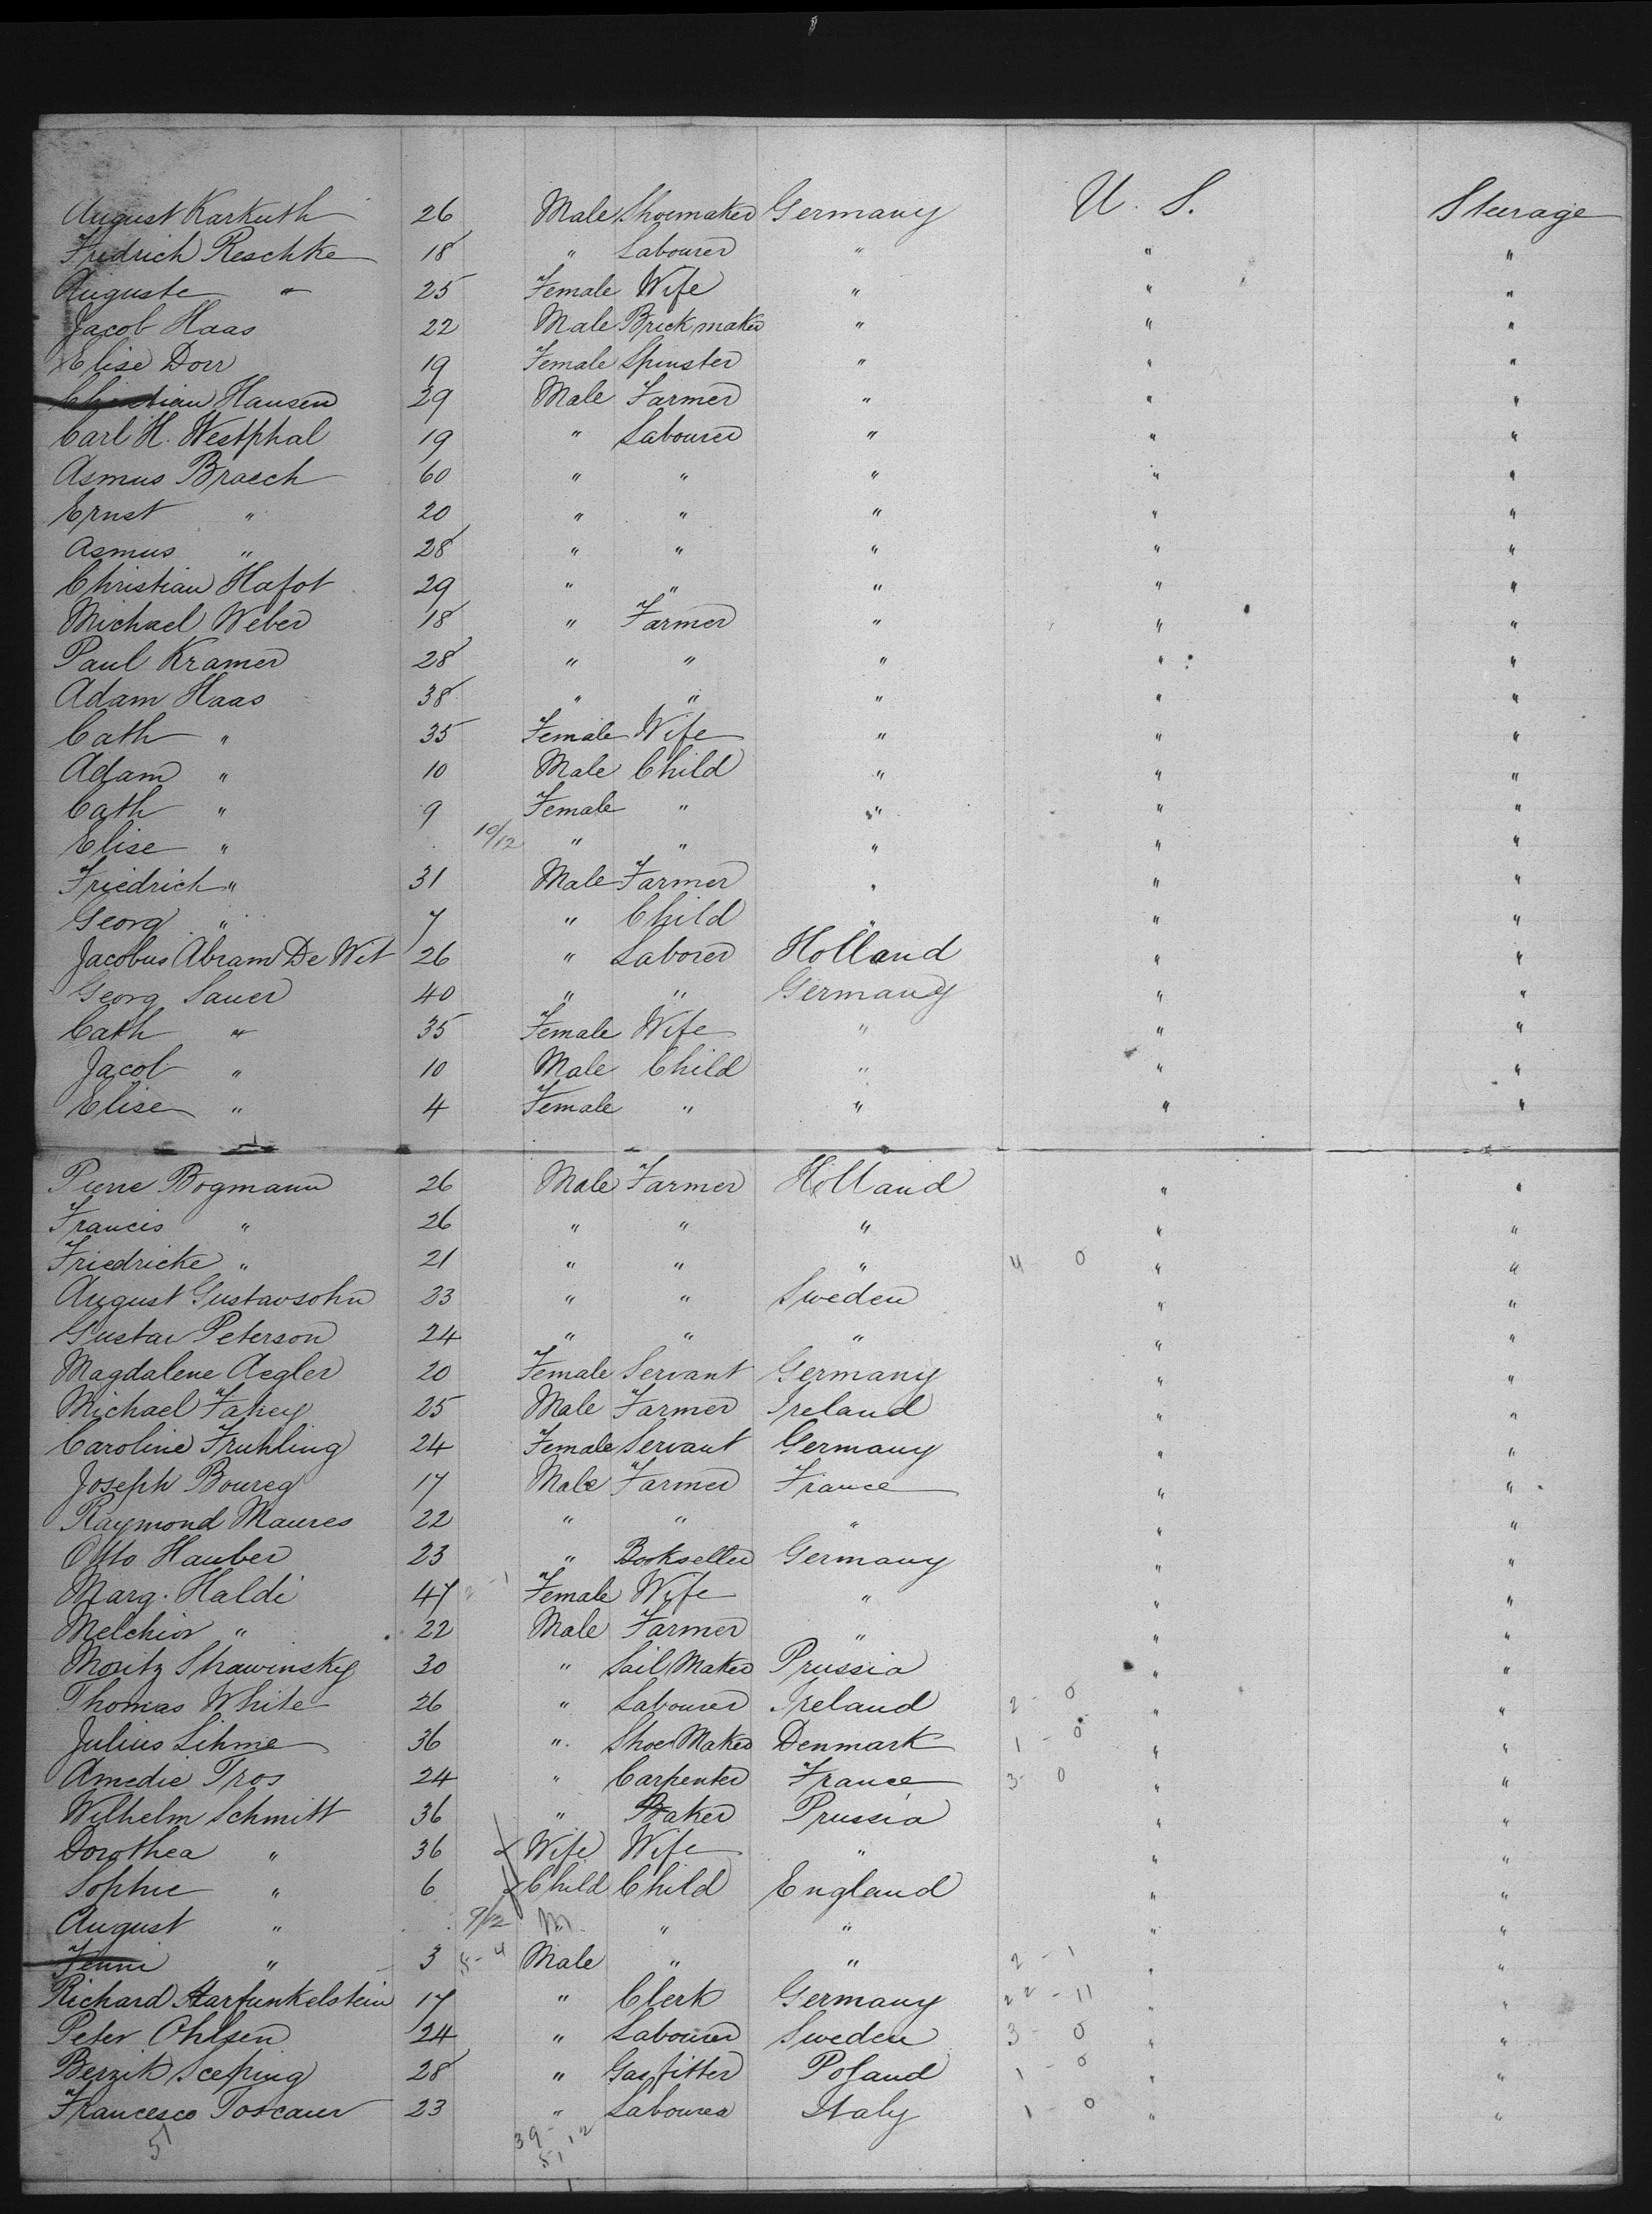 August Karkuth 26 Male Shoemaker Germany U. S. Steerage
Fredrich Reschke 18 " Labourer " " "
Auguste " 25 Female Wife " " "
Jacob Haas 22 Male Brickmaker " " "
Elise Dorr 19 Female Spinster " " "
Christian Hansen 29 Male Farmer " " "
Carl H. Westphal 19 " Labourer " " "
Asmus Braech 60 " " " " "
Ernst " 20 " " " " "
Asmus " 28 " " " " "
Christian Hafot 29 " " " " "
Michael Weber 18 " Farmer " " "
Paul Kramer 28 " " " " "
Adam Haas 38 " " " " "
Cath " 35 Female Wife " " "
Adam " 10 Male Child " " "
Cath " 9 Female " " " "
Elise " 10/12 " " " " "
Friedrich " 31 Male Farmer " " "
Georg " 7 " Child " " "
Jacobus Abram De Wit 26 " Laborer Holland " "
Georg Sauer 40 " " Germany " "
Cath " 35 Female Wife " " "
Jacob " 10 Male Child " " "
Elise " 4 Female " " " "
Pierre Bogmann 26 Male Farmer Holland " "
Francis " 26 " " " " "
Friedricke " 21 " " " 4 0 " "
August Gustavsohn 23 " " Sweden " "
Gustav Peterson 24 " " " " "
Magdalene Aegler 20 Female Servant Germany " "
Michael Fahey 25 Male Farmer Ireland " "
Caroline Fruhling 24 Female Servant Germany " "
Joseph Boureg 17 Male Farmer France " "
Raymond Maures 22 " " " " "
Otto Hauber 23 " Bookseller Germany " "
Marg. Haldi 47 2 - 1 Female Wife " " "
Melchior " 22 Male Farmer " " "
Moritz Shawinsky 30 " Sail Maker Prussia " "
Thomas White 26 " Labourer Ireland 2 - 0 " "
Julius Sihme 36 " Shoe Maker Denmark 1 - 0 " "
Amedie Tros 24 " Carpenter France 3 - 0 " "
Wilhelm Schmitt 36 " Baker Prussia " "
Dorothea " 36 Wife Wife " " "
Sophie " 6 Child Child England " "
August " 9/12 M " " " "
Jenni " 3 Male " " 2 - 1 " "
Richard Harfunkelstein 17 " Clerk Germany 22 - 11 " "
Peter Ohlsen 24 " Labourer Sweden 3 - 0 " "
Berzik 28 " Gasfitter Poland 1 - 0 " "
Francesco 23 " Labourer Italy 1 - 0 " "
51 39 - 12
51